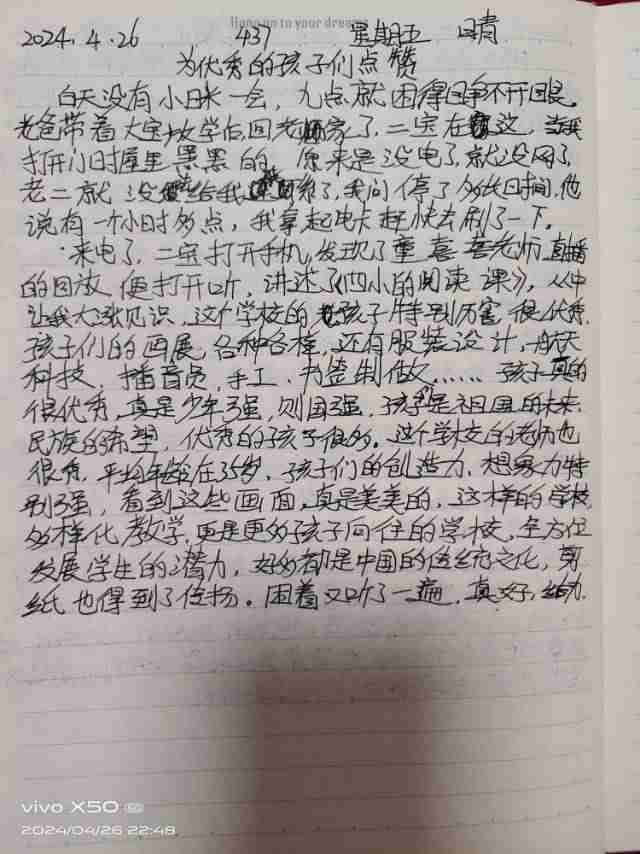 Hang on to your dreams
2024.4.26 437 星期五 晴
为优秀的孩子们点赞
白天没有小眯一会，九点就困得睁不开眼。
老爸带着大宝放学后回老家了，二宝在这，当我
打开门时握里黑黑的，原来是没电了，就没网了，
老二就没给我了，我问停了多长时间，他
说有一个小时多点，我拿起电卡赶快去刷了一下。
来电了，二宝打开手机，发现了董喜老师直播
的回放，便打开听，讲述了《四小的阅读课》，从中
让我大涨见识，这个学校的孩子特别厉害，很优秀，
孩子们的画展，各种各样，还有服装设计，航天
科技，播音员，手工、书签制做……孩子真的
很优秀，真是少年强，则国强，孩子们是祖国的未来，
民族的希望，优秀的孩子很多。这个学校的老师也
很秀，平均年龄在35岁，孩子们的创造力，想象力特
别强，看到这些画面，真是美美的，这样的学校
多样化教学，更是更多孩子向往的学校，全方位
发展学生的潜力，好多都是中国的传统文化，剪
纸也得到了传扬。困着又听了一遍，真好，给力.
vivo X50 5G
2024/04/26 22:48